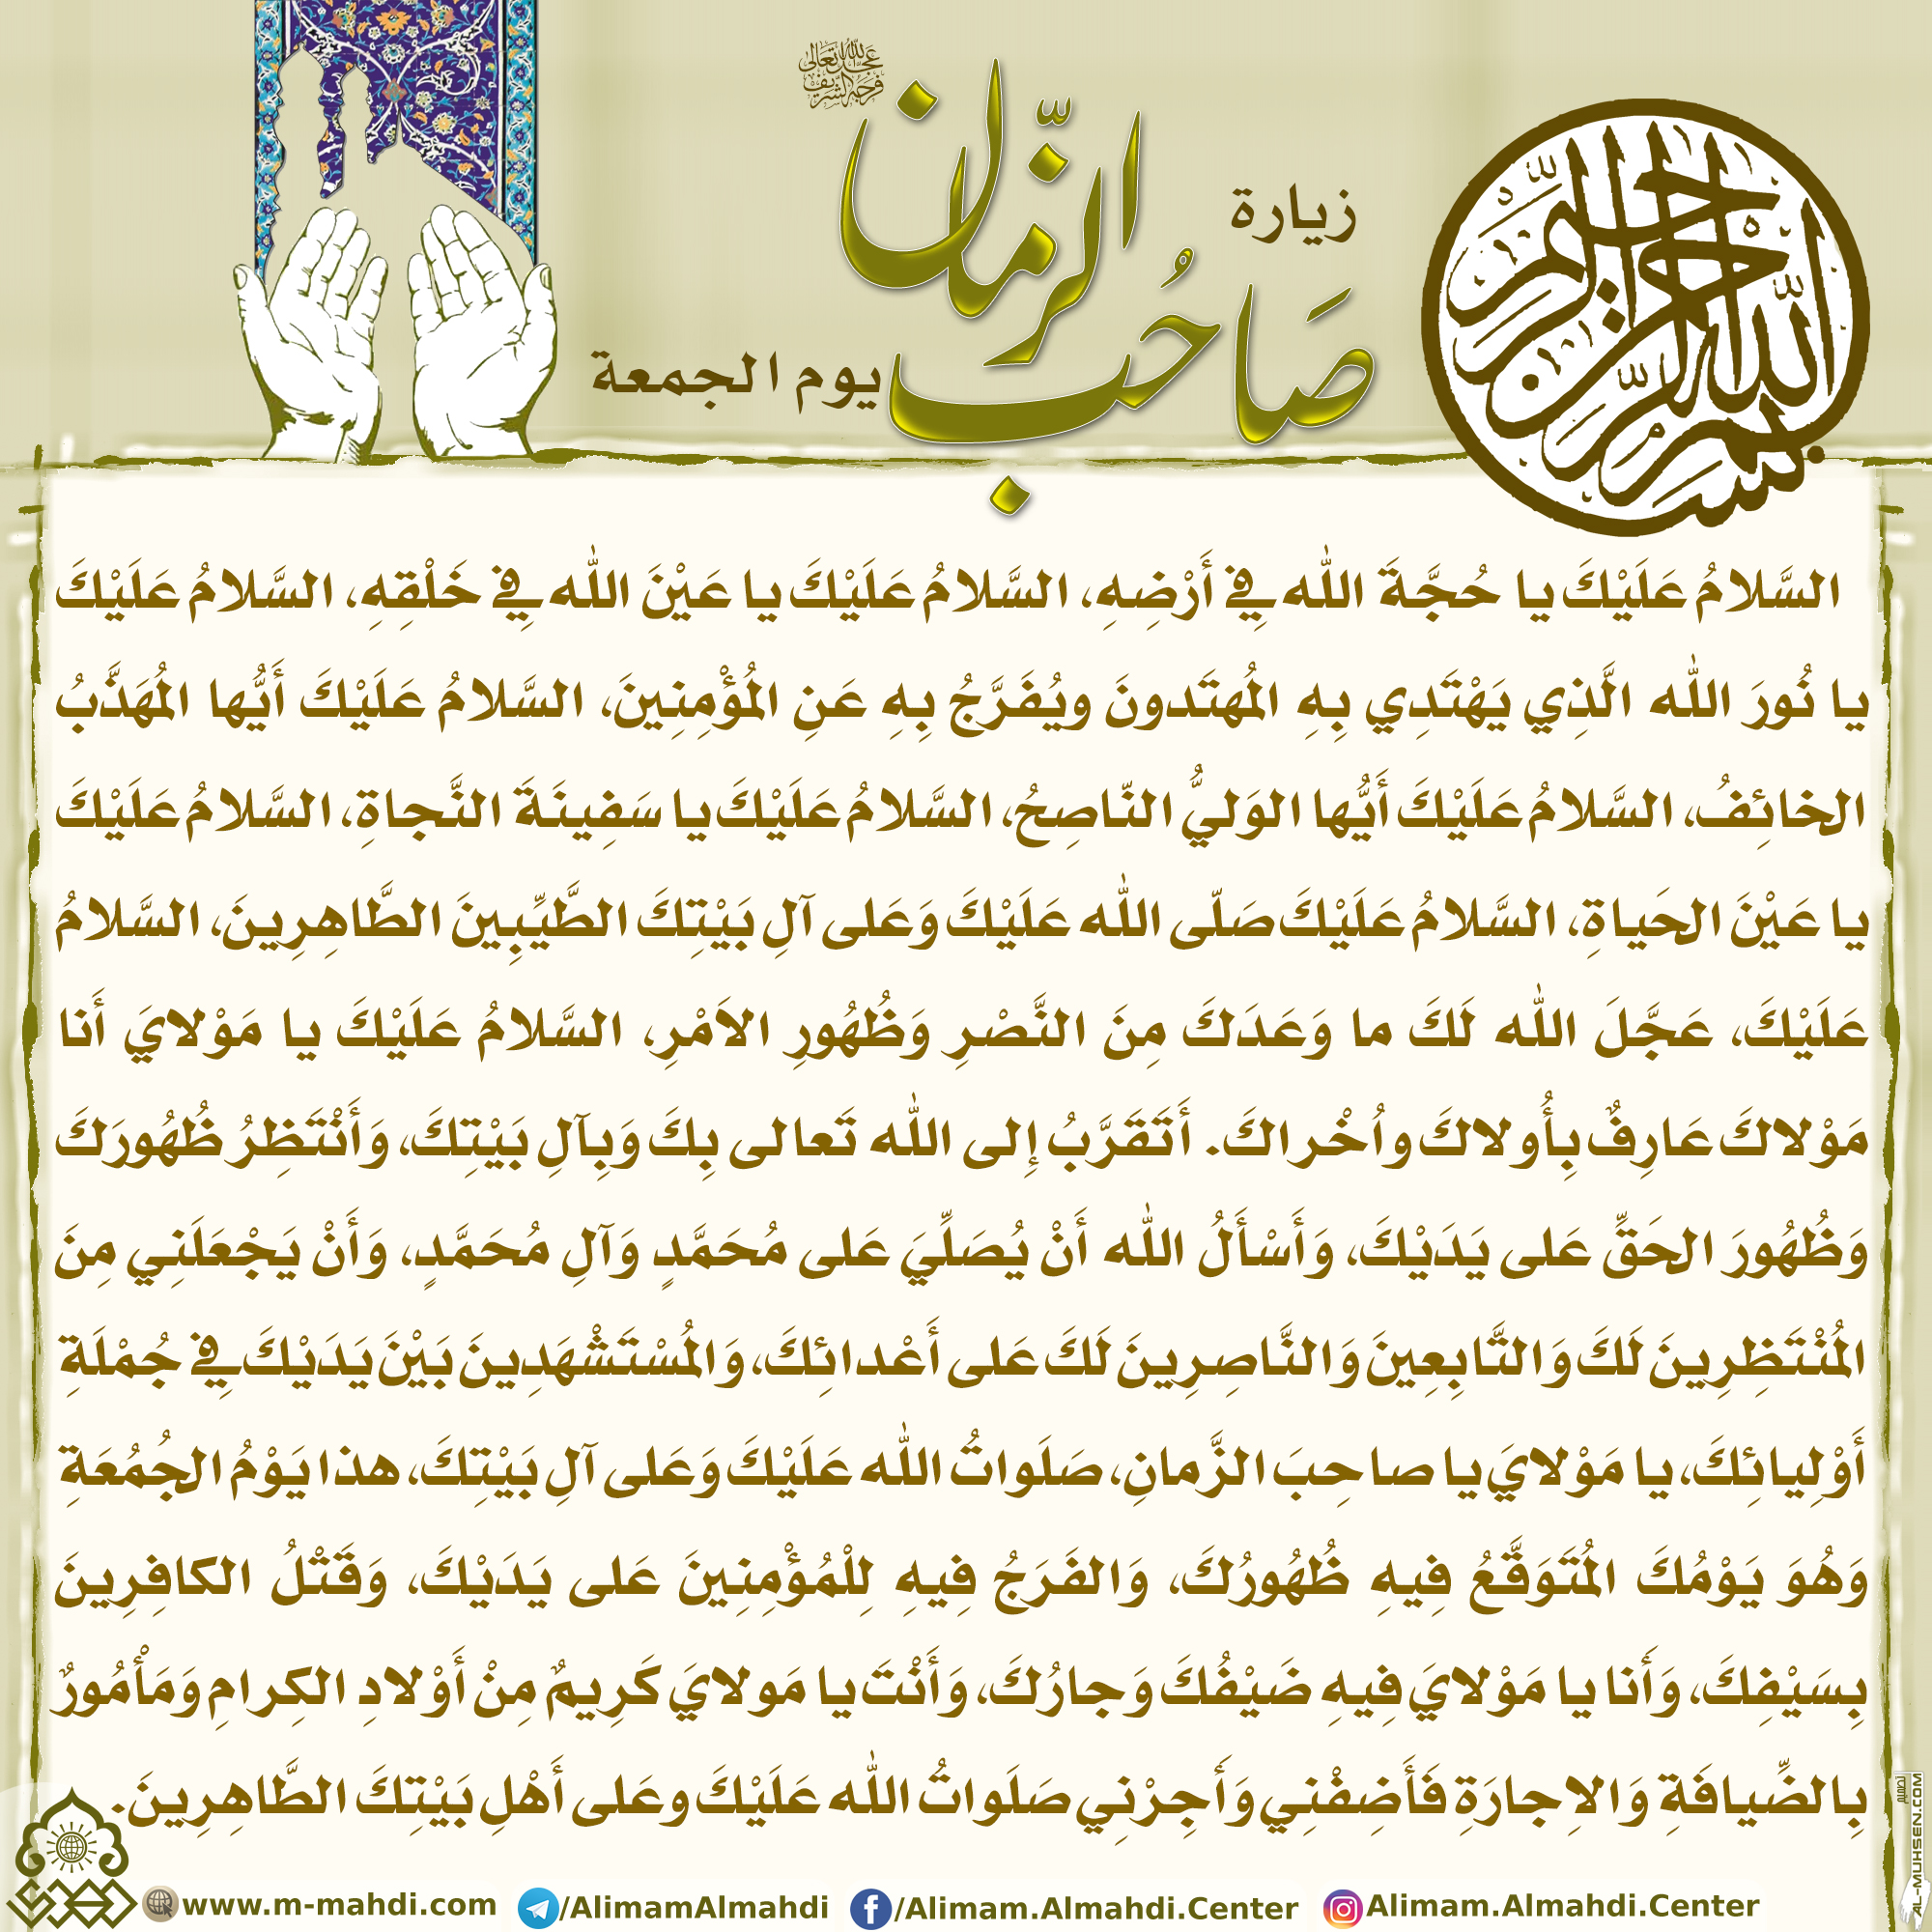 بسم الله الرحمن الرحيم
زيارة
صَاحُب الزّمان
عجل الله تعالى فرجه الشريف
يوم الجمعة
السَّلامُ عَلَيْكَ يا حُجَّةَ الله فِي أَرْضِهِ، السَّلامُ عَلَيْكَ يا عَيْنَ الله فِي خَلْقِهِ، السَّلامُ عَلَيْكَ
يا نُورَ الله الَّذِي يَهْتَدِي بِهِ المُهتَدونَ ويُفَرَّجُ بِهِ عَنِ المُؤْمِنِينَ، السَّلامُ عَلَيْكَ أَيُّها المُهَذَّبُ
الخائِفُ، السَّلامُ عَلَيْكَ أَيُّها الوَليُّ النّاصِحُ، السَّلامُ عَلَيْكَ يا سَفِينَةَ النَّجاةِ، السَّلامُ عَلَيْكَ
يا عَيْنَ الحَياةِ، السَّلامُ عَلَيْكَ صَلّى الله عَلَيْكَ وَعَلى آلِ بَيْتِكَ الطَّيِّبِينَ الطَّاهِرِينَ، السَّلامُ
عَلَيْكَ، عَجَّلَ الله لَكَ ما وَعَدَكَ مِنَ النَّصْرِ وَظُهُورِ الاَمْرِ، السَّلامُ عَلَيْكَ يا مَوْلايَ أَنا
مَوْلاكَ عَارِفٌ بِأُولاكَ واُخْراكَ. أَتَقَرَّبُ إِلى الله تَعالى بِكَ وَبِآلِ بَيْتِكَ، وَأَنْتَظِرُ ظُهُورَكَ
وَظُهُورَ الحَقِّ عَلى يَدَيْكَ، وَأَسْأَلُ الله أَنْ يُصَلِّيَ عَلى مُحَمَّدٍ وَآلِ مُحَمَّدٍ، وَأَنْ يَجْعَلَنِي مِنَ
المُنْتَظِرِينَ لَكَ وَالتَّابِعِينَ وَالنَّاصِرِينَ لَكَ عَلى أَعْدائِكَ، وَالمُسْتَشْهَدِينَ بَيْنَ يَدَيْكَ فِي جُمْلَةِ
أَوْلِيائِكَ، يا مَوْلايَ يا صاحِبَ الزَّمانِ، صَلَواتُ الله عَلَيْكَ وَعَلى آلِ بَيْتِكَ، هذا يَوْمُ الجُمُعَةِ
وَهُوَ يَوْمُكَ المُتَوَقَّعُ فِيهِ ظُهُورُكَ، وَالفَرَجُ فِيهِ لِلْمُؤْمِنِينَ عَلى يَدَيْكَ، وَقَتْلُ الكافِرِينَ
بِسَيْفِكَ، وَأَنا يا مَوْلايَ فِيهِ ضَيْفُكَ وَجارُكَ، وَأَنْتَ يا مَولايَ كَرِيمٌ مِنْ أَوْلادِ الكِرامِ وَمَأْمُورٌ
بِالضِّيافَةِ وَالاِجارَةِ فَأَضِفْنِي وَأَجِرْنِي صَلَواتُ الله عَلَيْكَ وعَلى أَهْلِ بَيْتِكَ الطَّاهِرِينَ.
www.m-mahdi.com /AlimamAlmahdi /Alimam.Almahdi.Center Alimam.Almahdi.Center
تصميم
AL-MUHSEN.COM